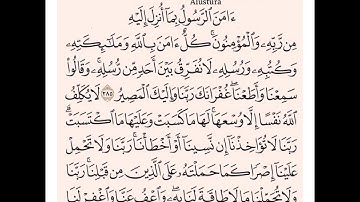 Alustura
ءَامَنَ ٱلرَّسُولُ بِمَآ أُنزِلَ إِلَيْهِ
مِن رَّبِّهِۦ وَٱلْمُؤْمِنُونَ ۚ كُلٌّ ءَامَنَ بِٱللَّهِ وَمَلَـٰٓئِكَتِهِۦ
وَكُتُبِهِۦ وَرُسُلِهِۦ لَا نُفَرِّقُ بَيْنَ أَحَدٍ مِّن رُّسُلِهِۦ ۚ وَقَالُوا۟
سَمِعْنَا وَأَطَعْنَا ۖ غُفْرَانَكَ رَبَّنَا وَإِلَيْكَ ٱلْمَصِيرُ ٢٨٥ لَا يُكَلِّفُ
ٱللَّهُ نَفْسًا إِلَّا وُسْعَهَا ۚ لَهَا مَا كَسَبَتْ وَعَلَيْهَا مَا ٱكْتَسَبَتْ ۗ
رَبَّنَا لَا تُؤَاخِذْنَآ إِن نَّسِينَآ أَوْ أَخْطَأْنَا ۚ رَبَّنَا وَلَا تَحْمِلْ
عَلَيْنَآ إِصْرًا كَمَا حَمَلْتَهُۥ عَلَى ٱلَّذِينَ مِن قَبْلِنَا ۚ رَبَّنَا
وَلَا تُحَمِّلْنَا مَا لَا طَاقَةَ لَنَا بِهِۦ ۖ وَٱعْفُ عَنَّا وَٱغْفِرْ لَنَا